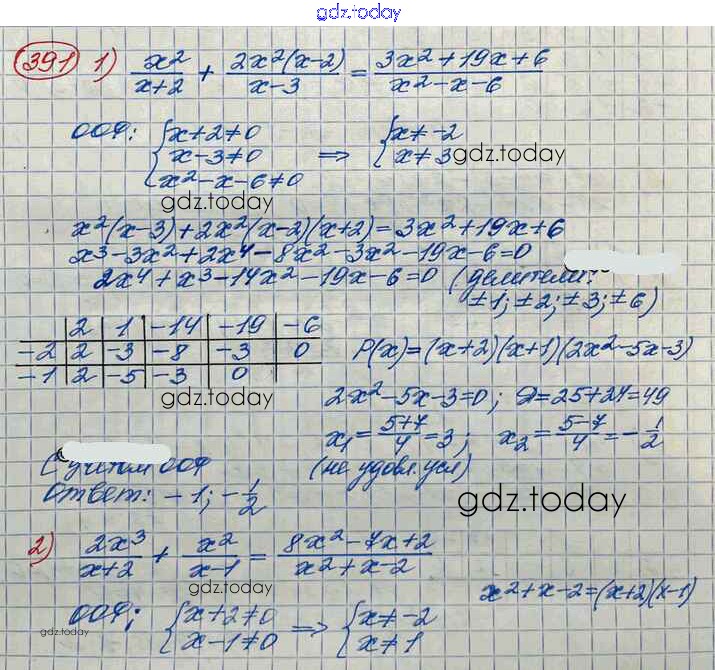 gdz.today
391 1) x²/(x+2) + 2x²(x-2)/(x-3) = (3x²+19x+6)/(x²-x-6)
ООФ: { x+2≠0 ; x-3≠0 ; x²-x-6≠0 ⇒ { x≠-2 ; x≠3 gdz.today
gdz.today
x²(x-3)+2x²(x-2)(x+2)=3x²+19x+6
x³-3x²+2x⁴-8x²-3x²-19x-6=0
2x⁴+x³-14x²-19x-6=0 (делители:
±1; ±2; ±3; ±6)
| | 2 | 1 | -14 | -19 | -6
-2 | 2 | -3 | -8 | -3 | 0
-1 | 2 | -5 | -3 | 0 |
P(x)=(x+2)(x+1)(2x²-5x-3)
gdz.today
2x²-5x-3=0; D=25+24=49
x₁=(5+7)/4=3; x₂=(5-7)/4=-1/2
С учётом ООФ (не удовл. усл)
Ответ: -1; -1/2
gdz.today
2) 2x³/(x+2) + x²/(x-1) = (8x²-7x+2)/(x²+x-2)
gdz.today
x²+x-2=(x+2)(x-1)
ООФ: { x+2≠0 ; x-1≠0 ⇒ { x≠-2 ; x≠1
gdz.today